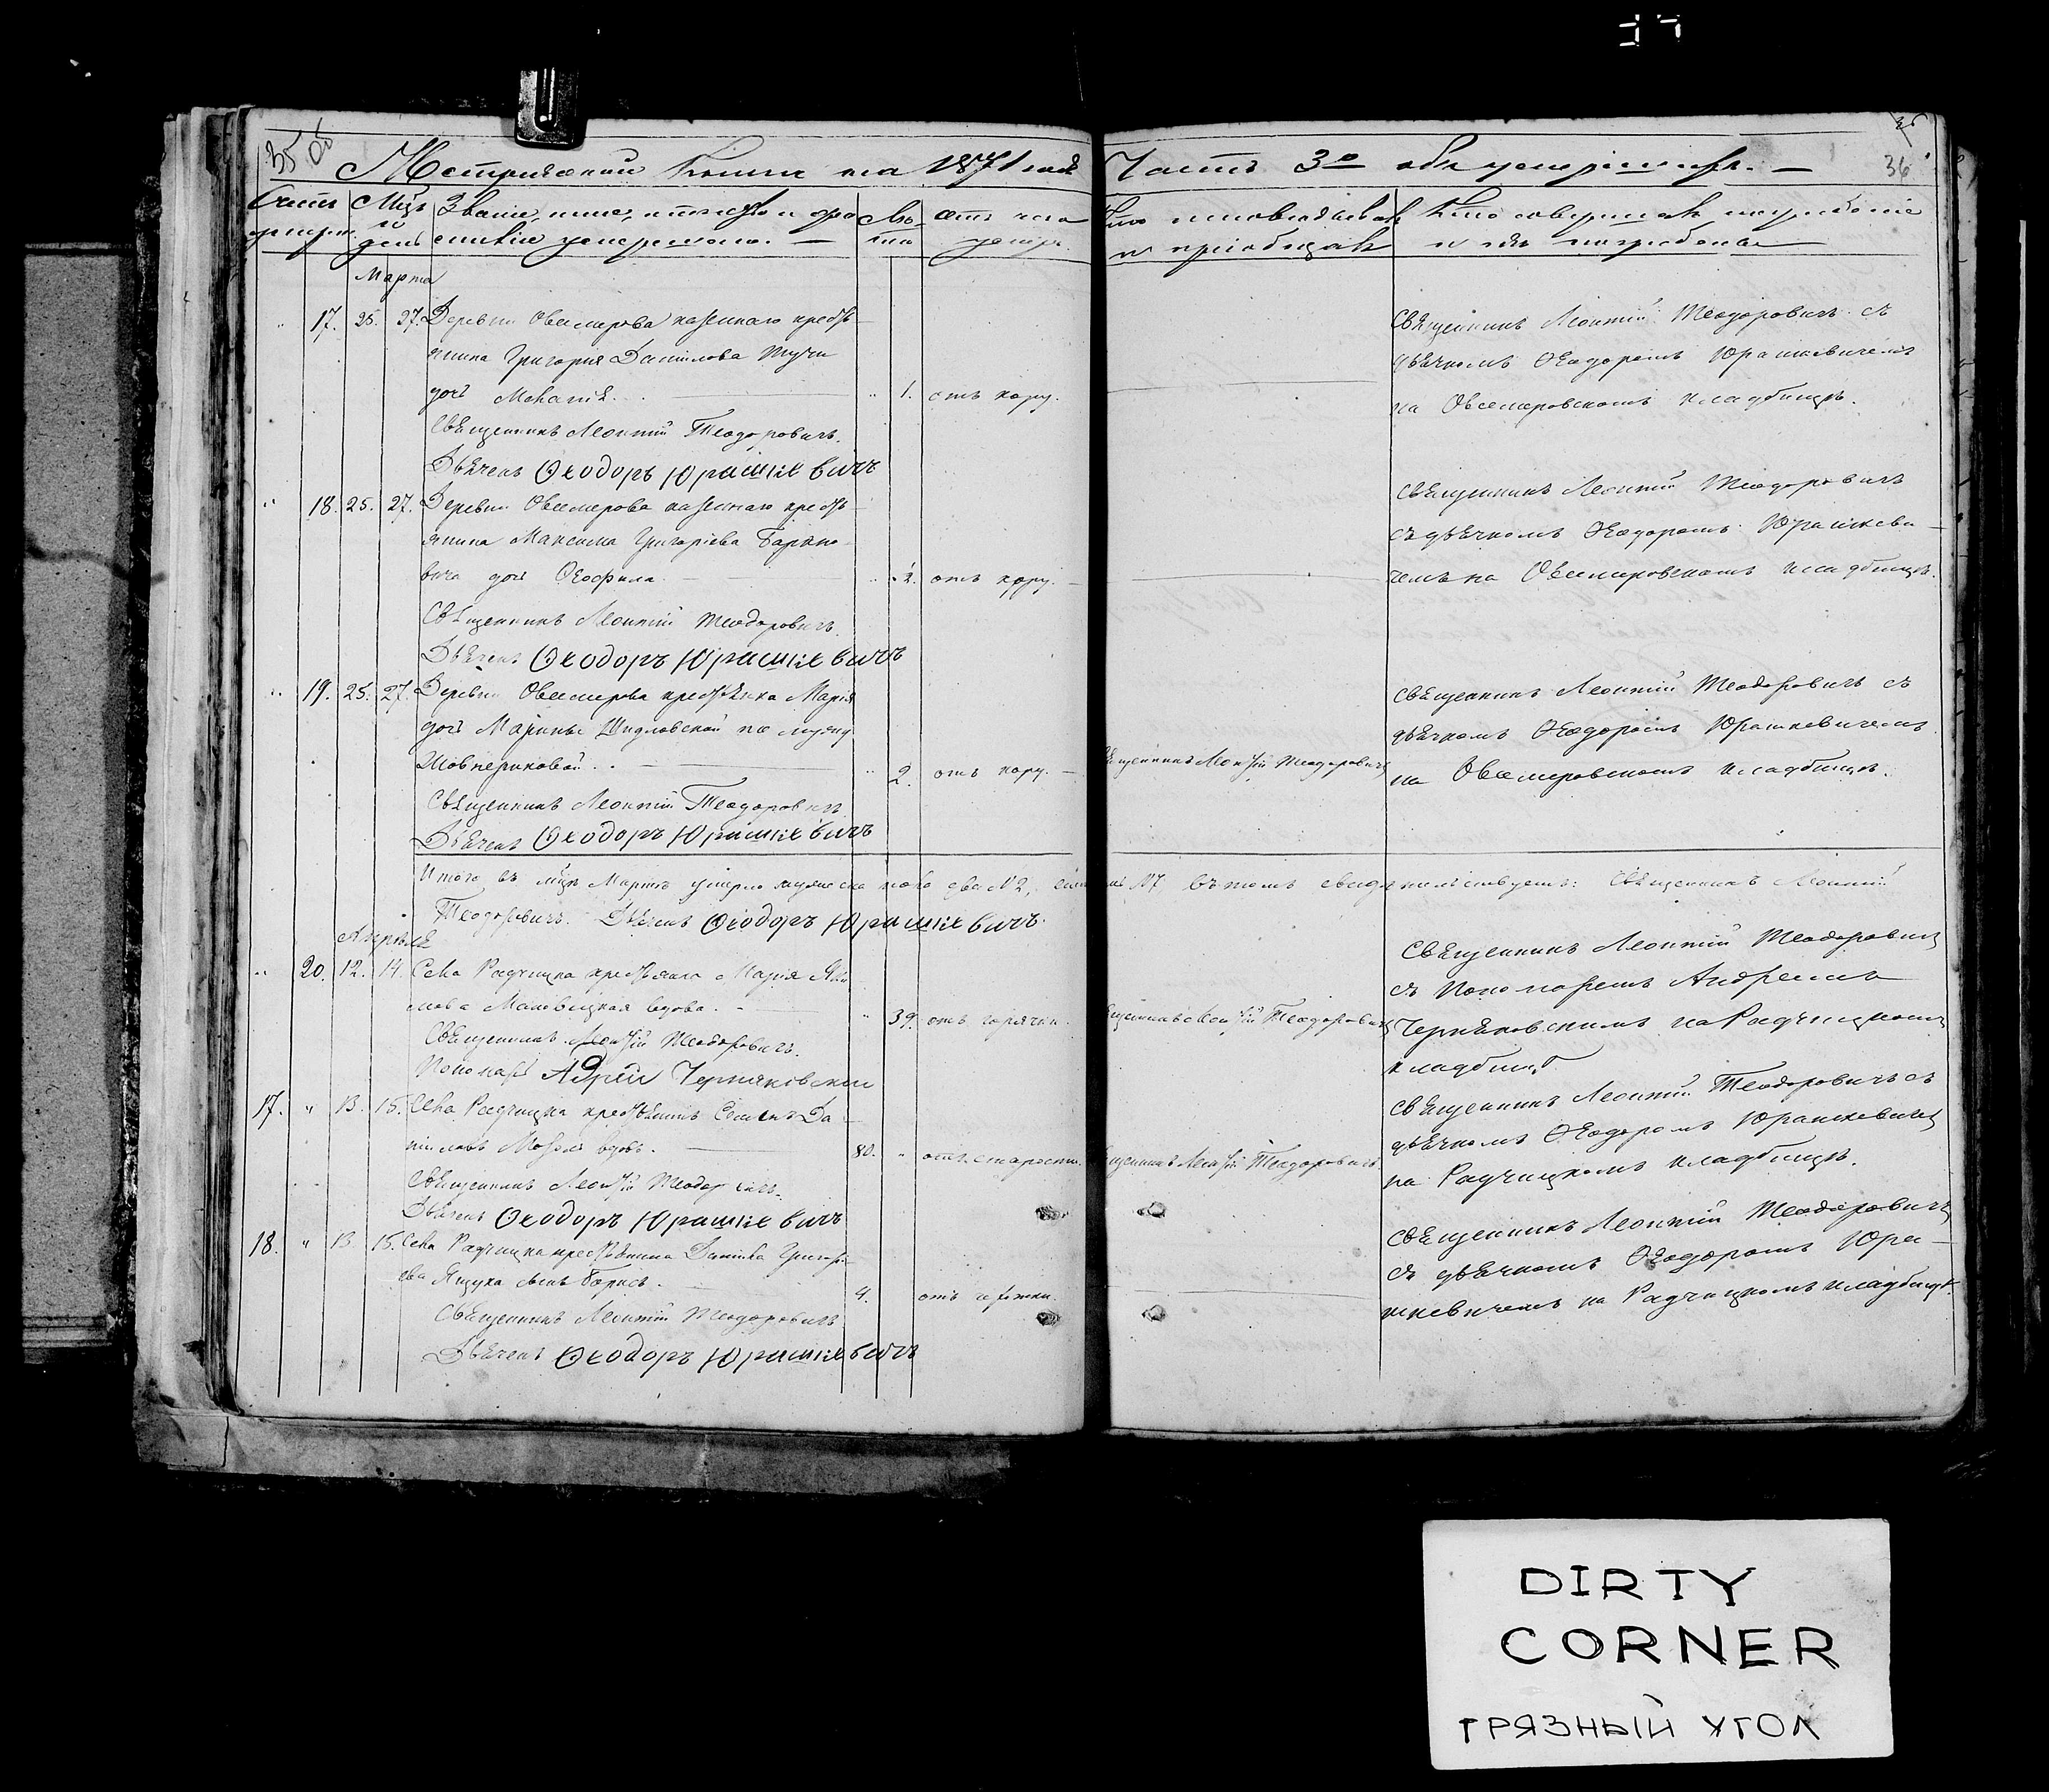 35 об
Метрической книги на 1871 годъ Часть 3я объ умершихъ.
36
Счетъ умерш. Мцъ и день Званіе, имя, отчество и фамилія умершаго. Лѣта отъ чего умеръ. Кто исповѣдывалъ и пріобщалъ Кто совершалъ погребеніе и гдѣ погребены
Марта
17. 25. 27. Деревни Овсемерова казеннаго кресть-
янина Григорія Данилова
дочь Меланія. 1. отъ кору.
Священникъ Леонтій Теодоровичъ.
Дьячекъ Ѳеодоръ Юрашкевичъ
Священникъ Леонтій Теодоровичъ съ
дьячкомъ Ѳеодоромъ Юрашкевичемъ
на Овсемеровскомъ кладбищѣ.
18. 25. 27. Деревни Овсемерова казеннаго кресть-
янина Максима Григоріева Барано-
вича дочь Ѳеофила 2. отъ кору.
Священникъ Леонтій Теодоровичъ.
Дьячекъ Ѳеодоръ Юрашкевичъ
Священникъ Леонтій Теодоровичъ
съ дьячкомъ Ѳеодоромъ Юрашкеви-
чемъ на Овсемеровскомъ кладбищѣ.
19. 25. 27. Деревни Овсемерова крестьянка Марія
дочь Марины Шидловской по мужу
2. отъ кору.
Священникъ Леонтій Теодоровичъ
Священникъ Леонтій Теодоровичъ
Дьячекъ Ѳеодоръ Юрашкевичъ
Священникъ Леонтій Теодоровичъ съ
дьячкомъ Ѳеодоромъ Юрашкевичемъ
на Овсемеровскомъ кладбищѣ.
Итого въ мцѣ Мартѣ умерло мужеска пола два N 2, N 7 въ томъ свидѣтельствуемъ: Священникъ Леонтій
Теодоровичъ. Дьячекъ Ѳеодоръ Юрашкевичъ.
Апрѣля
20. 12. 14. Села Радчицка крестьянка Марія Яки-
мова вдова. 39. отъ горячки.
Священникъ Леонтій Теодоровичъ
Священникъ Леонтій Теодоровичъ.
Пономарь Андрей Черняковскій
Священникъ Леонтій Теодоровичъ
съ Пономаремъ Андреемъ
Черняковскимъ на Радчицкомъ
кладбищѣ.
17. " 13. 15. Села Радчицка крестьянинъ Семенъ Да-
ниловъ вдовъ. 80. " отъ старости.
Священникъ Леонтій Теодоровичъ.
Священникъ Леонтій Теодоровичъ.
Дьячекъ Ѳеодоръ Юрашкевичъ
Священникъ Леонтій Теодоровичъ съ
дьячкомъ Ѳеодоромъ Юрашкевичемъ
на Радчицкомъ кладбищѣ.
18. " 13. 15. Села Радчицка крестьянина Данила Григорь-
ева Ящука сынъ Борисъ. 4. отъ горячки.
Священникъ Леонтій Теодоровичъ
Дьячекъ Ѳеодоръ Юрашкевичъ
Священникъ Леонтій Теодоровичъ
съ дьячкомъ Ѳеодоромъ Юра-
шкевичемъ на Радчицкомъ кладбищѣ.
DIRTY
CORNER
ГРЯЗНЫЙ УГОЛ